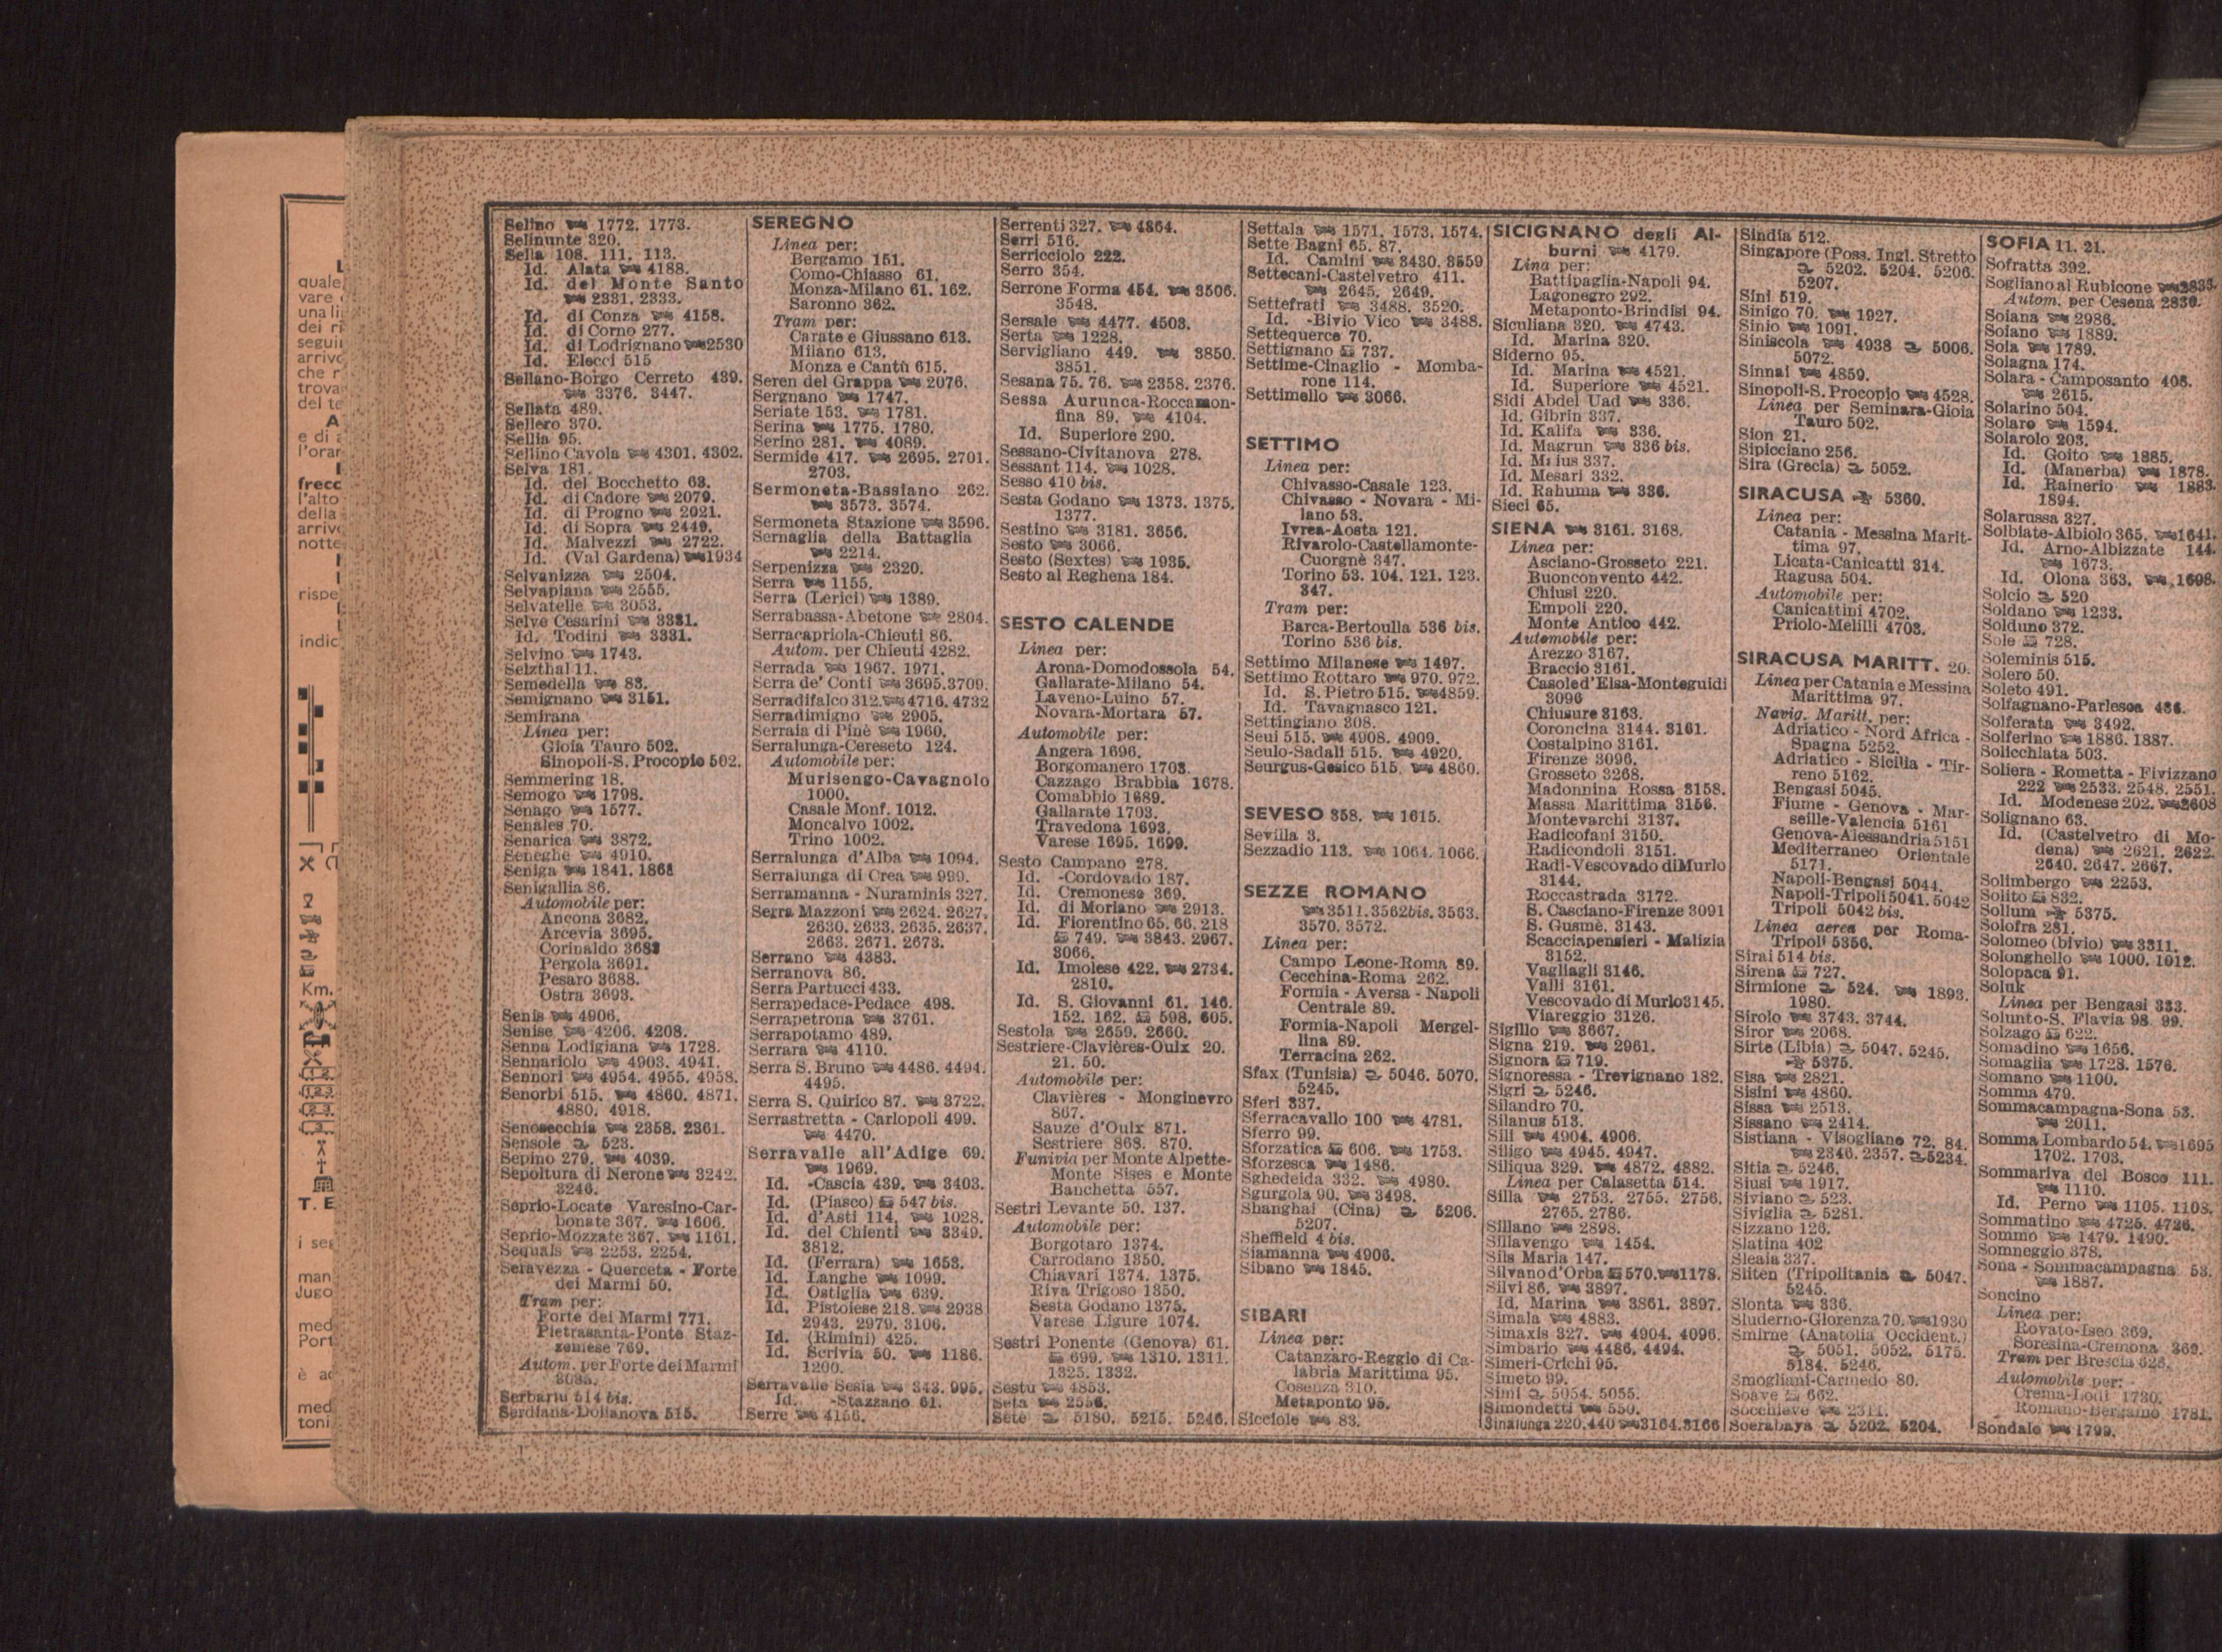 Selino 1772. 1773.
Selinunte 320.
Sella 108. 111. 113.
Id. Alata 4188.
Id. del Monte Santo
2331. 2333.
Id. di Conza 4158.
Id. di Corno 277.
Id. di Lodrignano 2530
Id. Elecci 515
Sellano-Borgo Cerreto 439.
3376. 3447.
Sellata 489.
Sellero 370.
Sellia 95.
Sellino Cavola 4301. 4302.
Selva 181.
Id. del Bocchetto 63.
Id. di Cadore 2079.
Id. di Progno 2021.
Id. di Sopra 2449.
Id. Malvezzi 2722.
Id. (Val Gardena) 1934
Selvanizza 2504.
Selvapiana 2555.
Selvatelle 3053.
Selve Cesarini 3331.
Id. Todini 3331.
Selvino 1743.
Selzthal 11.
Semedella 83.
Semignano 3151.
Semirana
Linea per:
Gioia Tauro 502.
Sinopoli-S. Procopio 502.
Semmering 18.
Semogo 1798.
Senago 1577.
Senales 70.
Senarica 3872.
Seneghe 4910.
Seniga 1841. 1868
Senigallia 86.
Automobile per:
Ancona 3682.
Arcevia 3695.
Corinaldo 3683
Pergola 3691.
Pesaro 3688.
Ostra 3693.
Senis 4906.
Senise 4206. 4208.
Senna Lodigiana 1728.
Sennariolo 4903. 4941.
Sennori 4954. 4955. 4958.
Senorbi 515. 4860. 4871.
4880. 4918.
Senosecchia 2358. 2361.
Sensole 523.
Sepino 279. 4039.
Sepoltura di Nerone 3242.
3246.
Seprio-Locate Varesino-Car-
bonate 367. 1606.
Seprio-Mozzate 367. 1161.
Sequals 2253. 2254.
Seravezza - Querceta - Forte
dei Marmi 50.
Tram per:
Forte dei Marmi 771.
Pietrasanta-Ponte Staz-
zemese 769.
Autom. per Forte dei Marmi
3035.
Serbariu 514 bis.
Serdiana-Dolianova 515.
SEREGNO
Linea per:
Bergamo 151.
Como-Chiasso 61.
Monza-Milano 61. 162.
Saronno 362.
Tram per:
Carate e Giussano 613.
Milano 613.
Monza e Cantù 615.
Seren del Grappa 2076.
Sergnano 1747.
Seriate 153. 1781.
Serina 1775. 1780.
Serino 281. 4089.
Sermide 417. 2695. 2701.
2703.
Sermoneta-Bassiano 262.
3573. 3574.
Sermoneta Stazione 3596.
Sernaglia della Battaglia
2214.
Serpenizza 2320.
Serra 1155.
Serra (Lerici) 1389.
Serrabassa-Abetone 2804.
Serracapriola-Chieuti 86.
Autom. per Chieuti 4282.
Serrada 1967. 1971.
Serra de' Conti 3695.3709.
Serradifalco 312. 4716. 4732
Serradimigno 2905.
Serraia di Pinè 1960.
Serralunga-Cereseto 124.
Automobile per:
Murisengo-Cavagnolo
1000.
Casale Monf. 1012.
Moncalvo 1002.
Trino 1002.
Serralunga d'Alba 1094.
Serralunga di Crea 999.
Serramanna - Nuraminis 327.
Serra Mazzoni 2624. 2627.
2630. 2633. 2635. 2637.
2663. 2671. 2673.
Serrano 4383.
Serranova 86.
Serra Partucci 433.
Serrapedace-Pedace 498.
Serrapetrona 3761.
Serrapotamo 489.
Serrara 4110.
Serra S. Bruno 4486. 4494.
4495.
Serra S. Quirico 87. 3722.
Serrastretta - Carlopoli 499.
4470.
Serravalle all'Adige 69.
1969.
Id. -Cascia 439. 3403.
Id. (Piasco) 547 bis.
Id. d'Asti 114. 1028.
Id. del Chienti 3349.
3812.
Id. (Ferrara) 1653.
Id. Langhe 1099.
Id. Ostiglia 639.
Id. Pistoiese 218. 2938
2943. 2979. 3106.
Id. (Rimini) 425.
Id. Scrivia 50. 1186.
1200.
Serravalle Sesia 343. 995.
Id. -Stazzano 61.
Serre 4156.
Serrenti 327. 4864.
Serri 516.
Serricciolo 222.
Serro 354.
Serrone Forma 454. 3506.
3548.
Sersale 4477. 4503.
Serta 1228.
Servigliano 449. 3850.
3851.
Sesana 75. 76. 2358. 2376.
Sessa Aurunca-Roccamon-
fina 89. 4104.
Id. Superiore 290.
Sessano-Civitanova 278.
Sessant 114. 1028.
Sesso 410 bis.
Sesta Godano 1373. 1375.
1377.
Sestino 3181. 3656.
Sesto 3066.
Sesto (Sextes) 1935.
Sesto al Reghena 184.
SESTO CALENDE
Linea per:
Arona-Domodossola 54.
Gallarate-Milano 54.
Laveno-Luino 57.
Novara-Mortara 57.
Automobile per:
Angera 1696.
Borgomanero 1703.
Cazzago Brabbia 1678.
Comabbio 1689.
Gallarate 1703.
Travedona 1693.
Varese 1695. 1699.
Sesto Campano 278.
Id. -Cordovado 187.
Id. Cremonese 369.
Id. di Moriano 2913.
Id. Fiorentino 65. 66. 218
749. 3843. 2967.
3066.
Id. Imolese 422. 2734.
2810.
Id. S. Giovanni 61. 146.
152. 162. 598. 605.
Sestola 2659. 2660.
Sestriere-Clavières-Oulx 20.
21. 50.
Automobile per:
Clavières - Monginevro
867.
Sauze d'Oulx 871.
Sestriere 868. 870.
Funivia per Monte Alpette-
Monte Sises e Monte
Banchetta 557.
Sestri Levante 50. 137.
Automobile per:
Borgotaro 1374.
Carrodano 1350.
Chiavari 1374. 1375.
Riva Trigoso 1350.
Sesta Godano 1375.
Varese Ligure 1074.
Sestri Ponente (Genova) 61.
699. 1310. 1311.
1325. 1332.
Sestu 4853.
Seta 2556.
Sete 5180. 5215. 5246.
Settala 1571. 1573. 1574.
Sette Bagni 65. 87.
Id. Camini 3430. 3559
Settecani-Castelvetro 411.
2645. 2649.
Settefrati 3488. 3520.
Id. -Bivio Vico 3488.
Settequerce 70.
Settignano 737.
Settime-Cinaglio - Momba-
rone 114.
Settimello 3066.
SETTIMO
Linea per:
Chivasso-Casale 123.
Chivasso - Novara - Mi-
lano 53.
Ivrea-Aosta 121.
Rivarolo-Castellamonte-
Cuorgnè 347.
Torino 53. 104. 121. 123.
347.
Tram per:
Barca-Bertoulla 536 bis.
Torino 536 bis.
Settimo Milanese 1497.
Settimo Rottaro 970. 972.
Id. S. Pietro 515. 4859.
Id. Tavagnasco 121.
Settingiano 308.
Seui 515. 4908. 4909.
Seulo-Sadali 515. 4920.
Seurgus-Gesico 515. 4860.
SEVESO 358. 1615.
Sevilla 3.
Sezzadio 113. 1064. 1066.
SEZZE ROMANO
3511. 3562bis. 3563.
3570. 3572.
Linea per:
Campo Leone-Roma 89.
Cecchina-Roma 262.
Formia - Aversa - Napoli
Centrale 89.
Formia-Napoli Mergel-
lina 89.
Terracina 262.
Sfax (Tunisia) 5046. 5070.
5245.
Sferi 337.
Sferracavallo 100 4781.
Sferro 99.
Sforzatica 606. 1753.
Sforzesca 1486.
Sghedeida 332. 4980.
Sgurgola 90. 3498.
Shanghai (Cina) 5206.
5207.
Sheffield 4 bis.
Siamanna 4906.
Sibano 1845.
SIBARI
Linea per:
Catanzaro-Reggio di Ca-
labria Marittima 95.
Cosenza 310.
Metaponto 95.
Sicciole 83.
SICIGNANO degli Al-
burni 4179.
Lina per:
Battipaglia-Napoli 94.
Lagonegro 292.
Metaponto-Brindisi 94.
Siculiana 320. 4743.
Id. Marina 320.
Siderno 95.
Id. Marina 4521.
Id. Superiore 4521.
Sidi Abdel Uad 336.
Id. Gibrin 337.
Id. Kalifa 336.
Id. Magrun 336 bis.
Id. Mius 337.
Id. Mesari 332.
Id. Rahuma 336.
Sieci 65.
SIENA 3161. 3168.
Linea per:
Asciano-Grosseto 221.
Buonconvento 442.
Chiusi 220.
Empoli 220.
Monte Antico 442.
Automobile per:
Arezzo 3167.
Braccio 3161.
Casole d'Elsa-Monteguidi
3096
Chiusure 3163.
Coroncina 3144. 3161.
Costalpino 3161.
Firenze 3096.
Grosseto 3268.
Madonnina Rossa 3158.
Massa Marittima 3156.
Montevarchi 3137.
Radicofani 3150.
Radicondoli 3151.
Radi-Vescovado di Murlo
3144.
Roccastrada 3172.
S. Casciano-Firenze 3091
S. Gusmè. 3143.
Scacciapensieri - Malizia
3152.
Vagliagli 3146.
Valli 3161.
Vescovado di Murlo 3145.
Viareggio 3126.
Sigillo 3667.
Signa 219. 2961.
Signora 719.
Signoressa - Trevignano 182.
Sigri 5246.
Silandro 70.
Silanus 513.
Sili 4904. 4906.
Siligo 4945. 4947.
Siliqua 329. 4872. 4882.
Linea per Calasetta 514.
Silla 2753. 2755. 2756.
2765. 2786.
Sillano 2898.
Sillavengo 1454.
Sils Maria 147.
Silvano d'Orba 570. 1178.
Silvi 86. 3897.
Id. Marina 3861. 3897.
Simala 4883.
Simaxis 327. 4904. 4096.
Simbario 4486. 4494.
Simeri-Crichi 95.
Simeto 99.
Simi 5054. 5055.
Simondetti 550.
Sinalunga 220.440 3164.3166
Sindia 512.
Singapore (Poss. Ingl. Stretto
5202. 5204. 5206.
5207.
Sini 519.
Sinigo 70. 1927.
Sinio 1091.
Siniscola 4938 5006.
5072.
Sinnai 4859.
Sinopoli-S. Procopio 4528.
Linea per Seminara-Gioia
Tauro 502.
Sion 21.
Sipicciano 256.
Sira (Grecia) 5052.
SIRACUSA 5360.
Linea per:
Catania - Messina Marit-
tima 97.
Licata-Canicattì 314.
Ragusa 504.
Automobile per:
Canicattini 4702.
Priolo-Melilli 4703.
SIRACUSA MARITT. 20.
Linea per Catania e Messina
Marittima 97.
Navig. Maritt. per:
Adriatico - Nord Africa -
Spagna 5252.
Adriatico - Sicilia - Tir-
reno 5162.
Bengasi 5045.
Fiume - Genova - Mar-
seille-Valencia 5161
Genova-Alessandria 5151
Mediterraneo Orientale
5171.
Napoli-Bengasi 5044.
Napoli-Tripoli 5041. 5042
Tripoli 5042 bis.
Linea aerea per Roma-
Tripoli 5356.
Sirai 514 bis.
Sirena 727.
Sirmione 524. 1893.
1980.
Sirolo 3743. 3744.
Siror 2068.
Sirte (Libia) 5047. 5245.
5375.
Sisa 2821.
Sisini 4860.
Sissa 2513.
Sissano 2414.
Sistiana - Visogliano 72. 84.
2346. 2357. 5234.
Sitia 5246.
Siusi 1917.
Siviano 523.
Siviglia 5281.
Sizzano 126.
Slatina 402
Sleaia 337.
Sliten (Tripolitania 5047.
5245.
Slonta 336.
Sluderno-Glorenza 70. 1930
Smirne (Anatolia Occident.)
5051. 5052. 5175.
5184. 5246.
Smogliani-Carmedo 80.
Soave 662.
Socchieve 2311.
Soerabaya 5202. 5204.
SOFIA 11. 21.
Sofratta 392.
Sogliano al Rubicone 2833.
Autom. per Cesena 2830.
Soiana 2986.
Soiano 1889.
Soia 1789.
Solagna 174.
Solara - Camposanto 408.
2615.
Solarino 504.
Solaro 1594.
Solarolo 203.
Id. Goito 1885.
Id. (Manerba) 1878.
Id. Rainerio 1883.
1894.
Solarussa 327.
Solbiate-Albiolo 365. 1641.
Id. Arno-Albizzate 144.
1673.
Id. Olona 363. 1698.
Solcio 520
Soldano 1233.
Solduno 372.
Sole 728.
Soleminis 515.
Solero 50.
Soleto 491.
Solfagnano-Parlesca 436.
Solferata 3492.
Solferino 1886. 1887.
Solicchiata 503.
Soliera - Rometta - Fivizzano
222 2533. 2548. 2551.
Id. Modenese 202. 2608
Solignano 63.
Id. (Castelvetro di Mo-
dena) 2621. 2622.
2640. 2647. 2667.
Solimbergo 2253.
Solito 832.
Sollum 5375.
Solofra 281.
Solomeo (bivio) 3311.
Solonghello 1000. 1012.
Solopaca 91.
Soluk
Linea per Bengasi 333.
Solunto-S. Flavia 98. 99.
Solzago 622.
Somadino 1656.
Somaglia 1728. 1576.
Somano 1100.
Somma 479.
Sommacampagna-Sona 53.
2011.
Somma Lombardo 54. 1695
1702. 1703.
Sommariva del Bosco 111.
1110.
Id. Perno 1105. 1108.
Sommatino 4725. 4726.
Sommo 1479. 1490.
Somneggio 378.
Sona - Sommacampagna 53.
1887.
Soncino
Linea per:
Rovato-Iseo 369.
Soresina-Cremona 369.
Tram per Brescia 626.
Automobile per:
Crema-Lodi 1730.
Romano-Bergamo 1781.
Sondalo 1799.